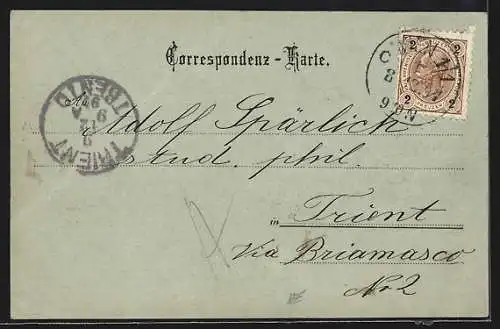 Correspondenz - Karte.
2 2
2 2
8
9 9 N
TRIENT
TRENTO
9
12
9 A
97
An
Adolf Spärlich
stud. phil.
in Trient
Via Briamasco
No 2